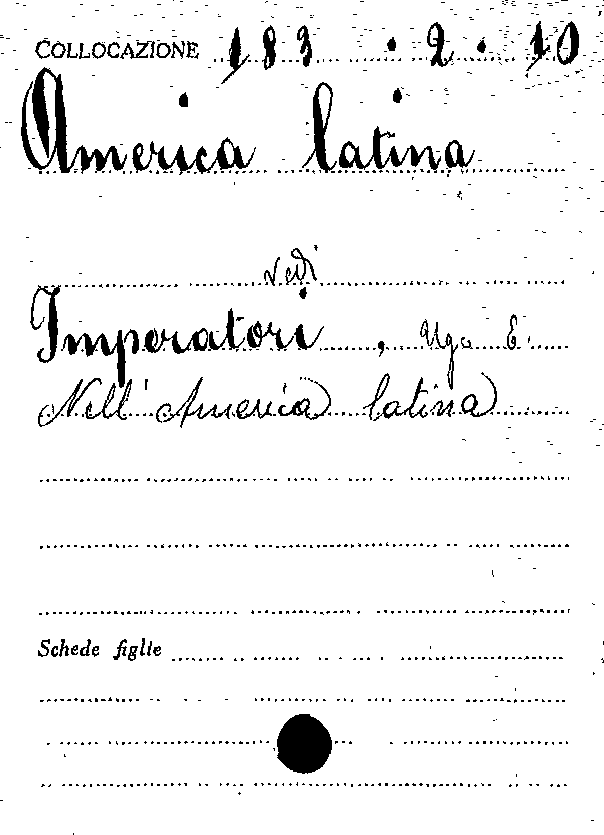 COLLOCAZIONE 183 . 2 . 10
America latina
vedi
Imperatori, Ugo E.
Nell' America latina
Schede figlie